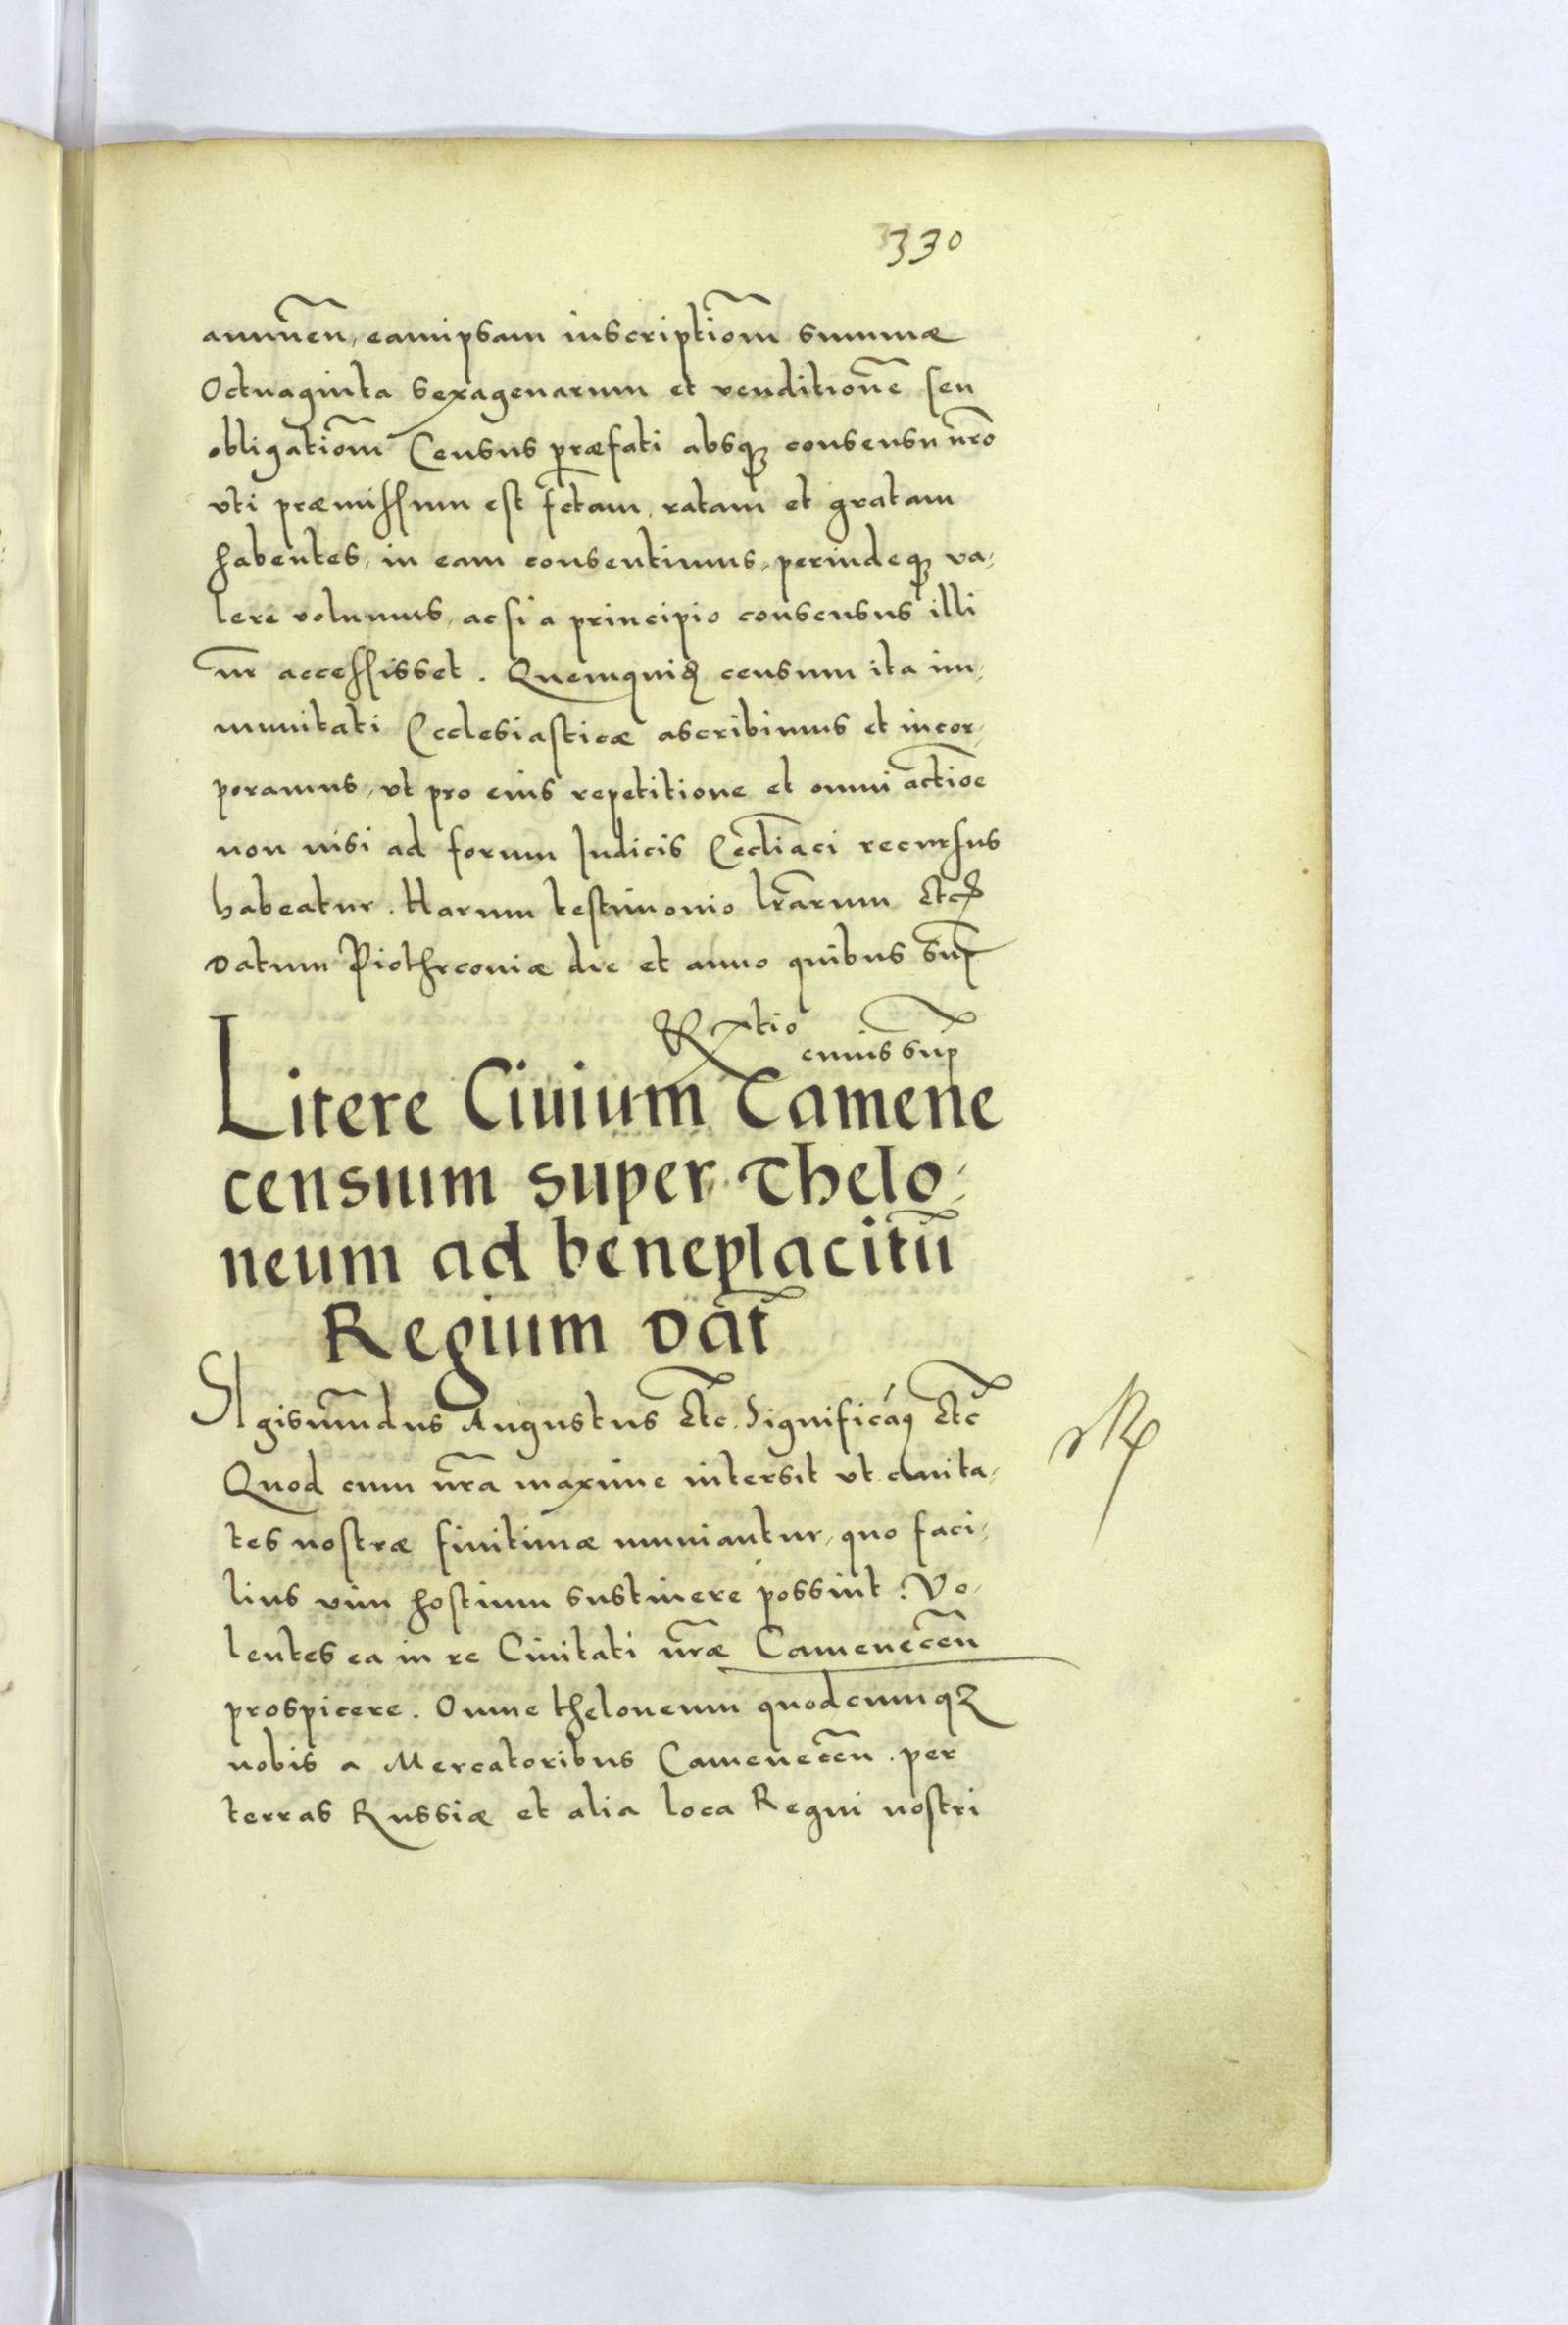 330
annuen̄, eamipsam inscriptiōm summæ
Octuaginta sexagenarum et venditionē seu
obligatiōm Census præfati absq; consensu nr̄o
vti præmissum est fc̄tam, ratam et gratam
habentes, in eam consentimus, perindeq; va,
lere volumus, ac si a principio consensus illi
nr̄ accessisset. Quemquid; censum ita im,
munitati Ecclesiasticæ ascribimus et incor,
poramus, vt pro eius repetitione et omni actiōe
non nisi ad forum Judicis Eccl̄iaci recursus
habeatur. Harum testimonio lr̄arum Etc
Datum Piothrconiæ die et anno quibus sup̄
Rtio
euius sup̄
Litere Ciuium Camene
censium super Thelo,
neum ad beneplacitū
Regium dat̄
SIgismūdus Augustus Etc. Significaq; Etc
Quod cum nr̄a maxime intersit vt ciuita,
tes nostræ finitimæ muniantur, quo faci,
lius vim hostium sustinere possint. Vo,
lentes ea in re Ciuitati nr̄æ Camenecen̄
prospicere. Omne theloneum quodcumq;
nobis a Mercatoribus Camenecen̄. per
terras Russiæ et alia loca Regni nostri